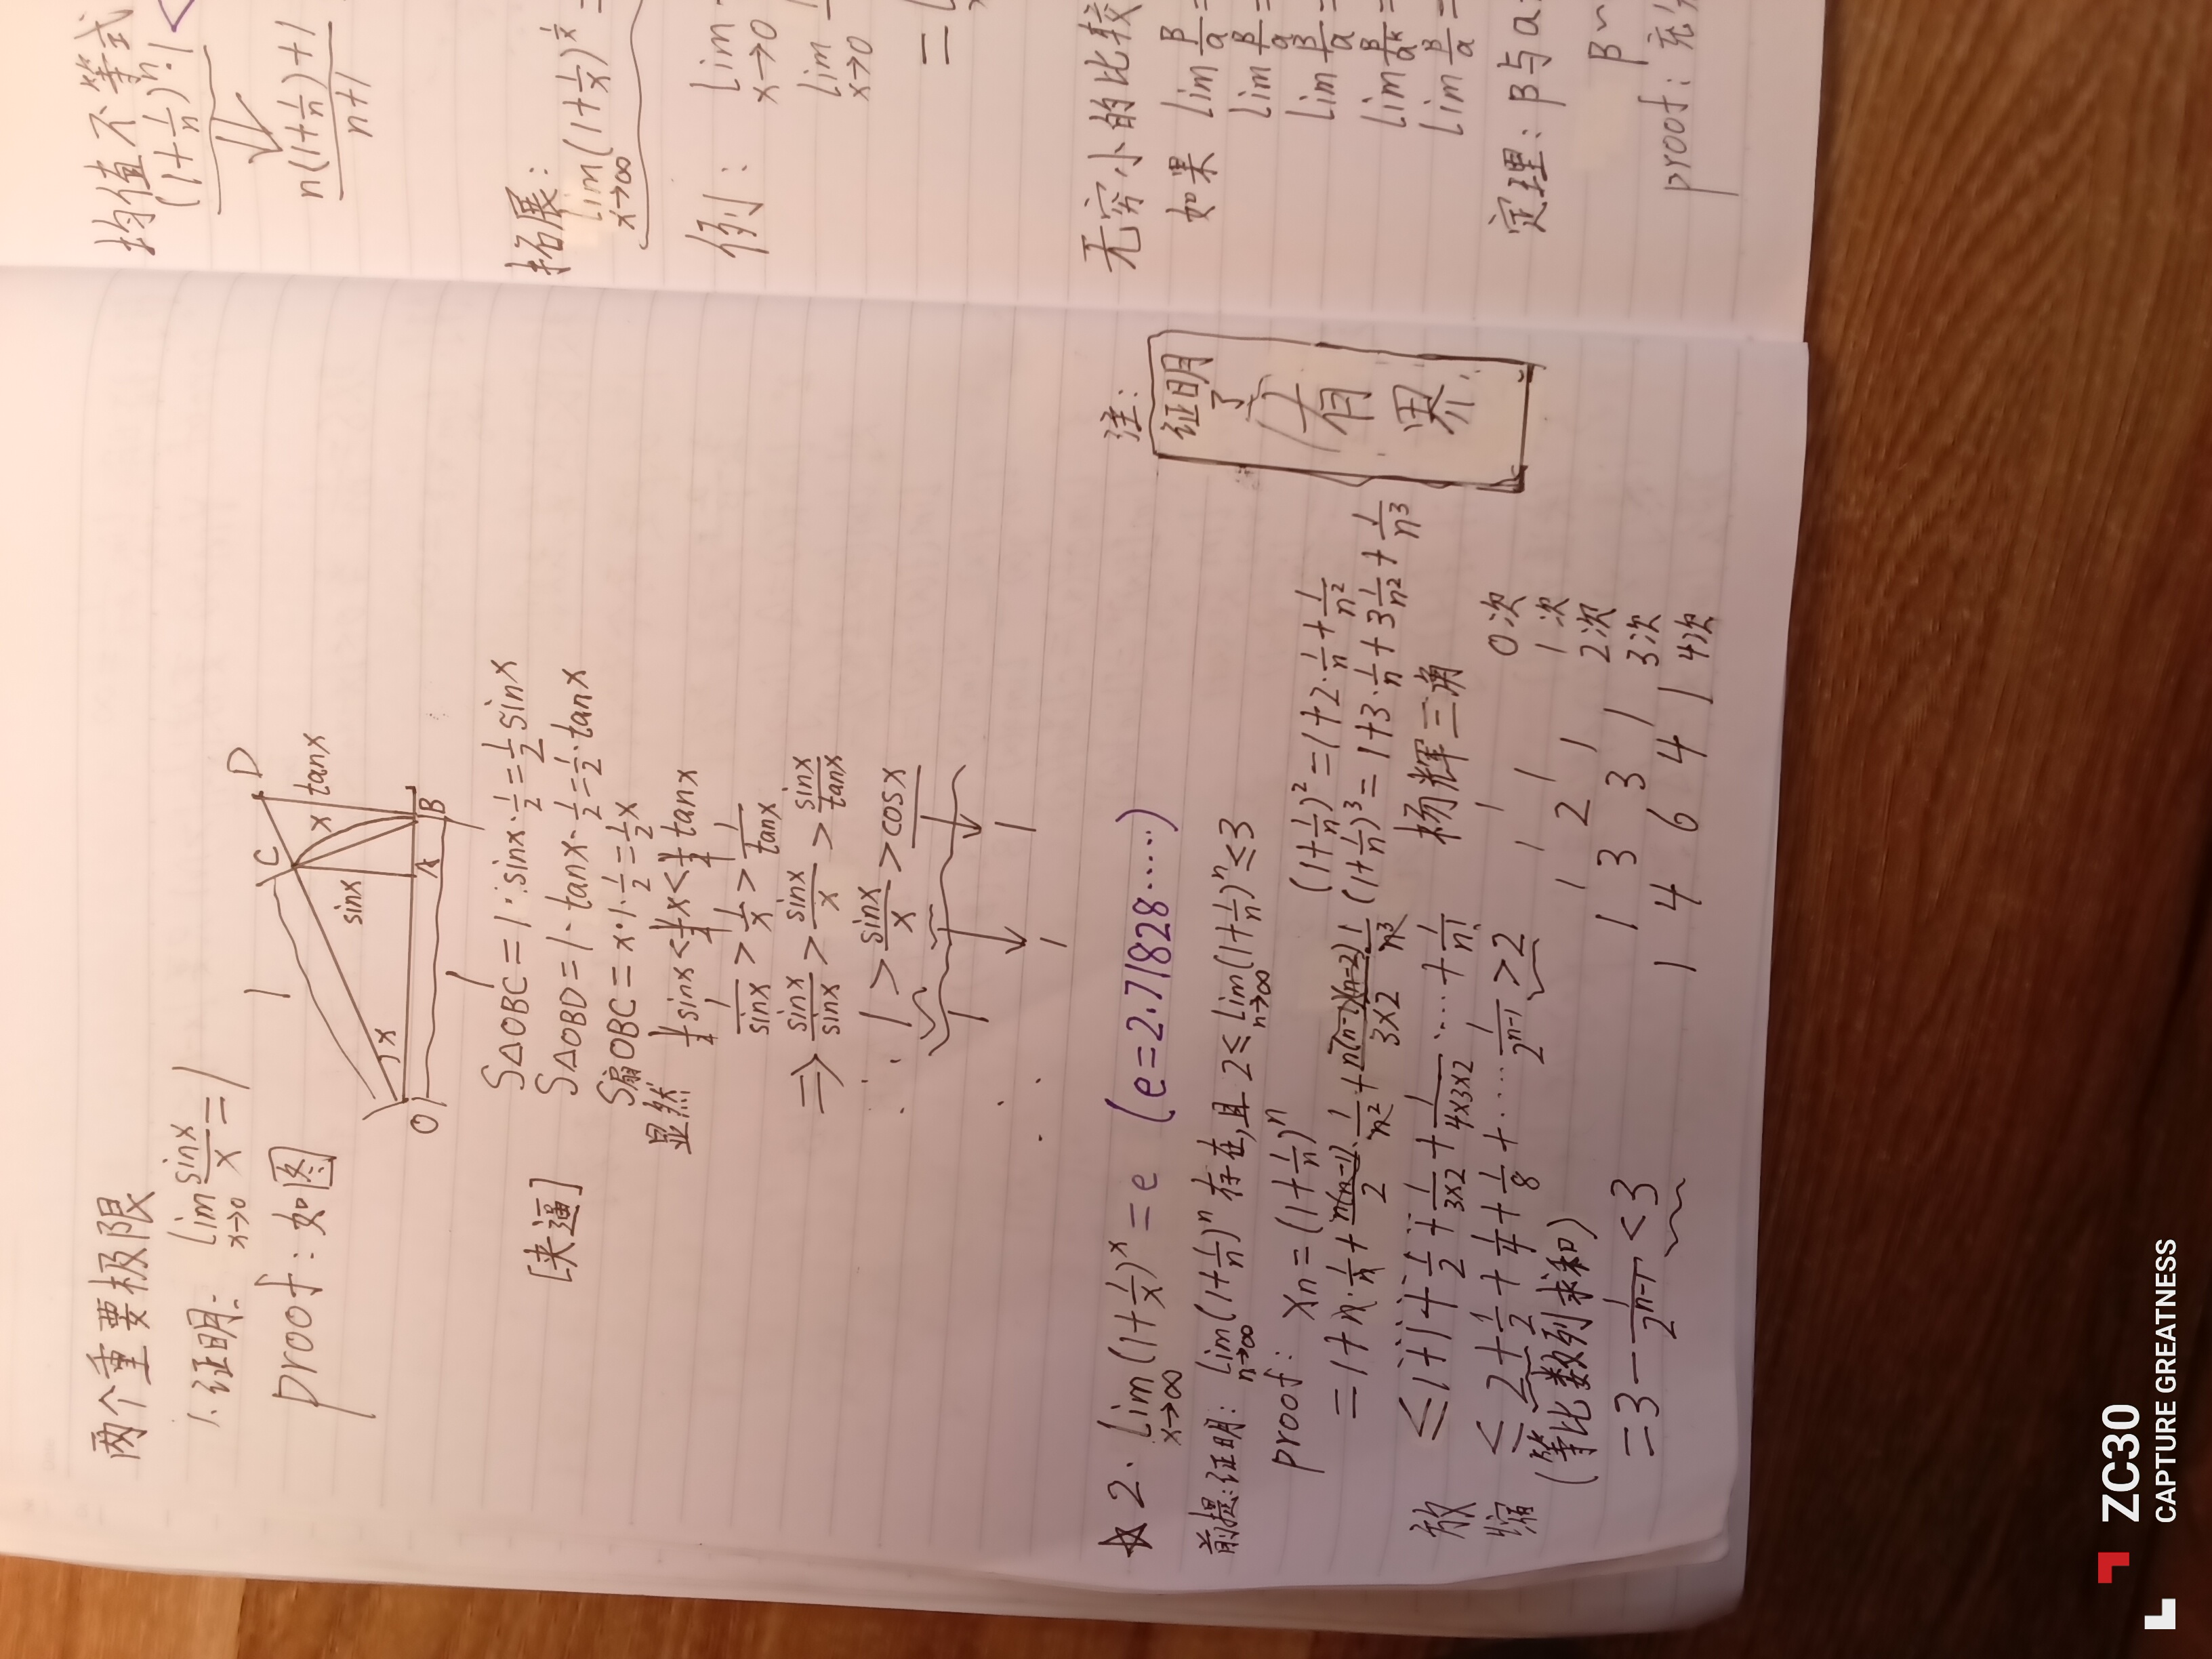 两个重要极限
1.证明: lim x→0 sinx/x = 1
proof: 如图
1
C
D
x
sinx
x
tanx
O
A
B
1
[夹逼]
S△OBC=1·sinx·1/2=1/2 sinx
S△OBD=1·tanx·1/2=1/2·tanx
S扇OBC=x·1·1/2=1/2x
显然 1/2 sinx<1/2 x<1/2 tanx
1/sinx > 1/x > 1/tanx
⇒ sinx/sinx > sinx/x > sinx/tanx
∴ 1 > sinx/x > cosx
∴ 1 1 1
☆2. lim x→∞ (1+1/x)^x = e (e=2.71828·····)
前提:证明: lim n→∞ (1+1/n)^n 存在,且 2≤ lim n→∞ (1+1/n)^n ≤3
proof: xn=(1+1/n)^n
=1+n·1/n+n(n-1)/2·1/n²+n(n-1)(n-2)/3×2·1/n³
放缩
≤1+1+1/2+1/3×2+1/4×3×2····+1/n!
≤2+1/2+1/4+1/8+····1/2^(n-1)>2
(等比数列求和)
=3-1/2^(n-1)<3
(1+1/n)²=1+2·1/n+1/n²
(1+1/n)³=1+3·1/n+3 1/n²+1/n³
杨辉三角
1 0次
1 1 1次
1 2 1 2次
1 3 3 1 3次
1 4 6 4 1 4次
注:
证明
了
有
界
均值不等式
(1+1/n)^n·1
n(1+1/n)+1/n+1
拓展:
lim x→∞ (1+1/x)^x =
例: lim x→0
lim x→0
=
无穷小的比较
如果 lim β/α =
lim β/α =
lim β/α =
lim β/α^k =
lim β/α =
定理: β与α
β~
proof: 充
ZC30
CAPTURE GREATNESS